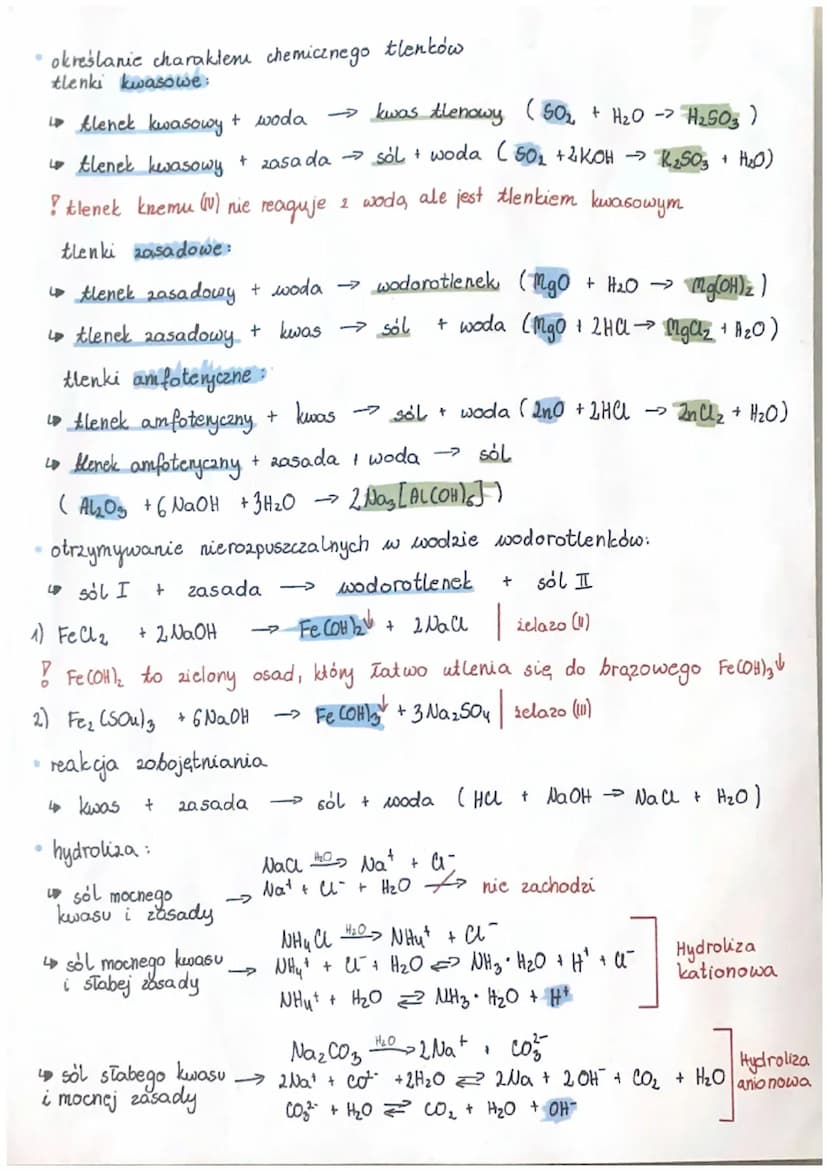 • określanie charakteru chemicznego tlenków
tlenki kwasowe:
↳ tlenek kwasowy + woda → kwas tlenowy (SO₂ + H₂O → H₂SO₃)
↳ tlenek kwasowy + zasada → sól + woda (SO₂ + 2KOH → K₂SO₃ + H₂O)
! tlenek krzemu (IV) nie reaguje z wodą, ale jest tlenkiem kwasowym
tlenki zasadowe:
↳ tlenek zasadowy + woda → wodorotlenek (MgO + H₂O → Mg(OH)₂)
↳ tlenek zasadowy + kwas → sól + woda (MgO + 2HCl → MgCl₂ + H₂O)
tlenki amfoteryczne:
↳ tlenek amfoteryczny + kwas → sól + woda (ZnO + 2HCl → ZnCl₂ + H₂O)
↳ tlenek amfoteryczny + zasada + woda → sól
(Al₂O₃ + 6NaOH + 3H₂O → 2Na₃[Al(OH)₆])
• otrzymywanie nierozpuszczalnych w wodzie wodorotlenków:
↳ sól I + zasada → wodorotlenek + sól II
1) FeCl₂ + 2NaOH → Fe(OH)₂↓ + 2NaCl | żelazo (II)
! Fe(OH)₂ to zielony osad, który łatwo utlenia się do brązowego Fe(OH)₃↓
2) Fe₂(SO₄)₃ + 6NaOH → Fe(OH)₃↓ + 3Na₂SO₄ | żelazo (III)
• reakcja zobojętniania
↳ kwas + zasada → sól + woda (HCl + NaOH → NaCl + H₂O)
• hydroliza:
NaCl H₂O→ Na⁺ + Cl⁻
↳ sól mocnego → Na⁺ + Cl⁻ + H₂O ↛ nie zachodzi
kwasu i zasady
NH₄Cl H₂O→ NH₄⁺ + Cl⁻
↳ sól mocnego kwasu → NH₄⁺ + Cl⁻ + H₂O ⇌ NH₃·H₂O + H⁺ + Cl⁻ Hydroliza
i słabej zasady kationowa
NH₄⁺ + H₂O ⇌ NH₃·H₂O + H⁺
Na₂CO₃ H₂O→ 2Na⁺ + CO₃²⁻
↳ sól słabego kwasu → 2Na⁺ + CO²⁻ + 2H₂O ⇌ 2Na + 2OH⁻ + CO₂ + H₂O Hydroliza
i mocnej zasady anionowa
CO₃²⁻ + H₂O ⇌ CO₂ + H₂O + OH⁻